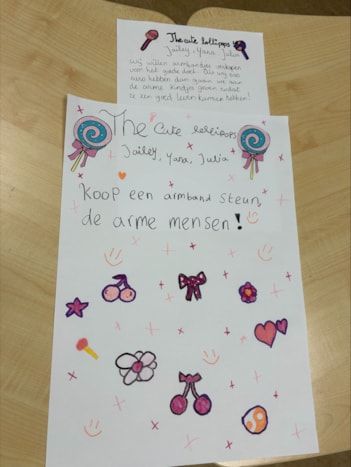 The cute lollipops
Jailey, Yana, Julia
wij willen armbandjes verkopen
voor het goede doel. Als wij
hebben dan gaan we naar
de arme kindjes geven zodat
ze een goed leven kunnen hebben!
The cute lollipops
Jailey, Yana, Julia
Koop een armband steun
de arme mensen!